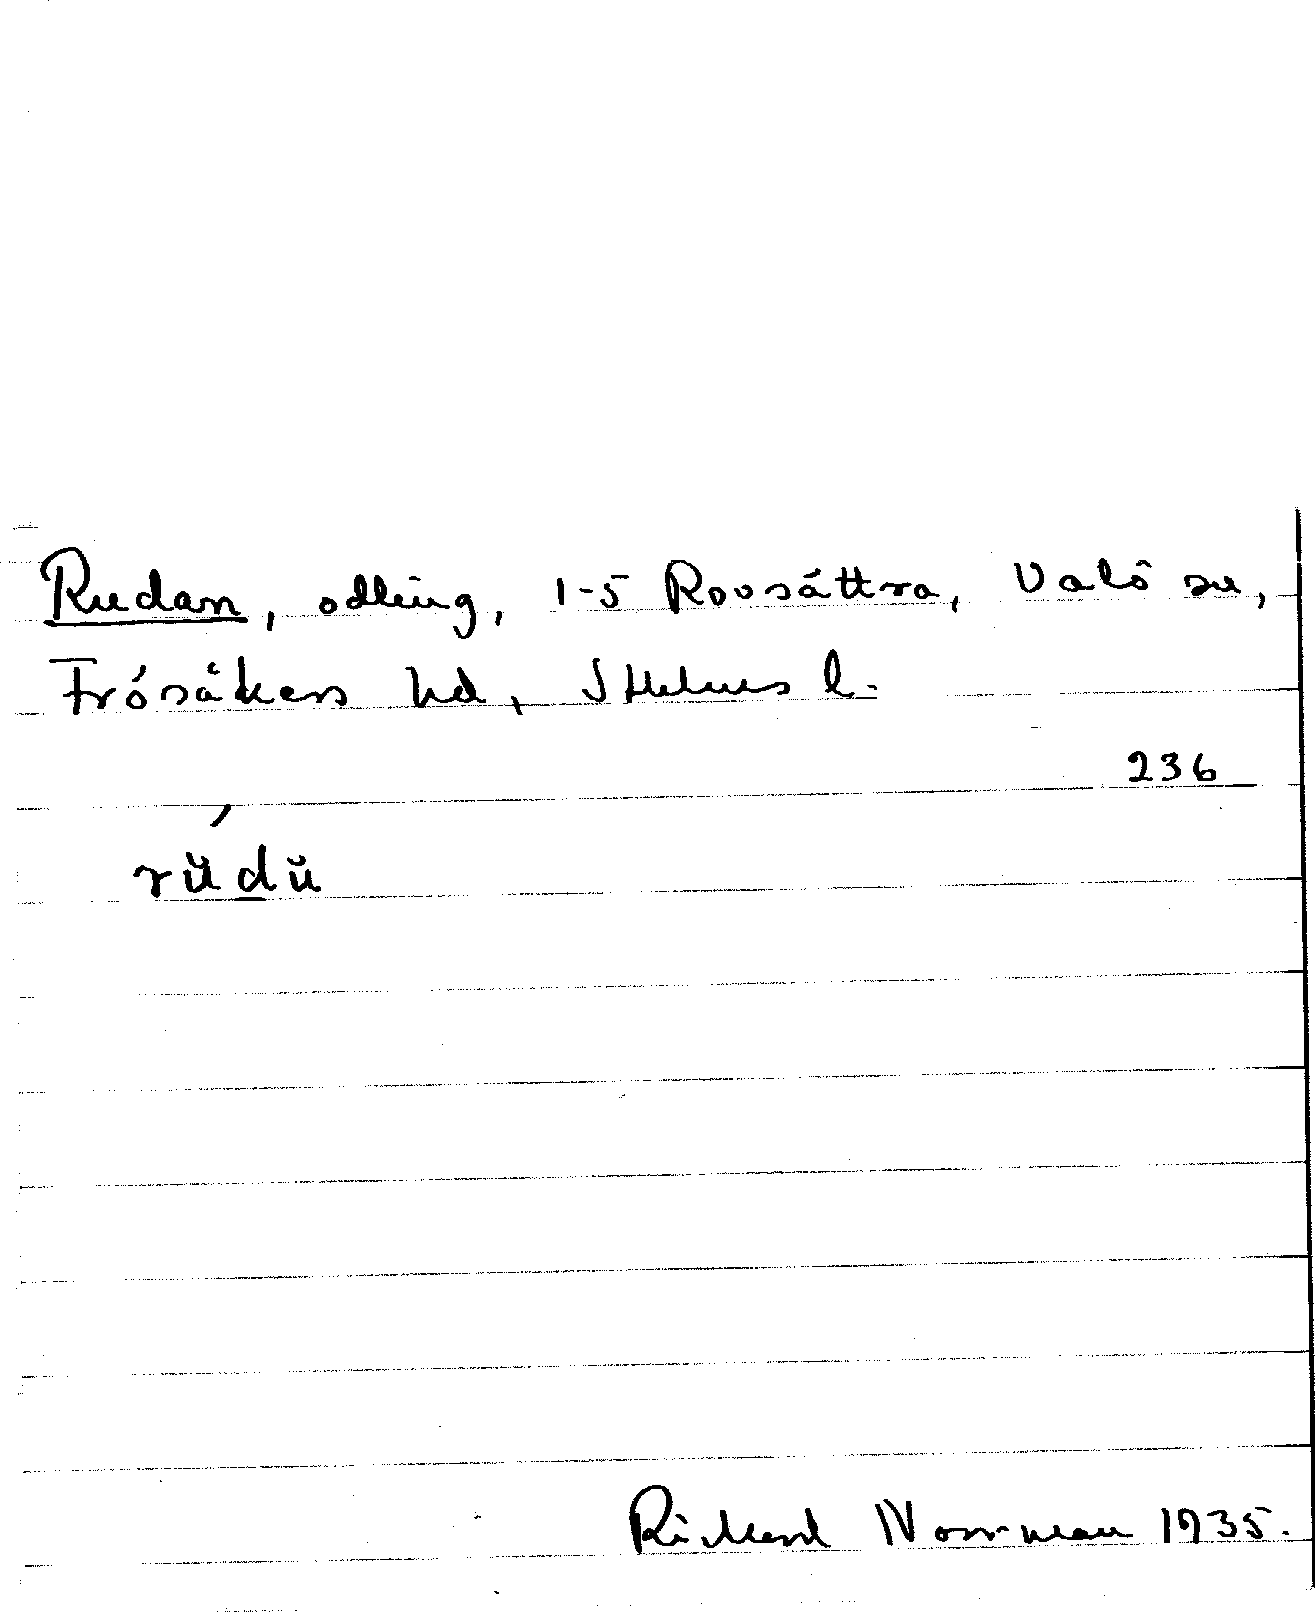 Rudan, odling, 1-5 Rovsättra, Valö sn,
Frösåkers hd, Sthlms l.
236
rŭdŭ
Rickard Norrman 1935.